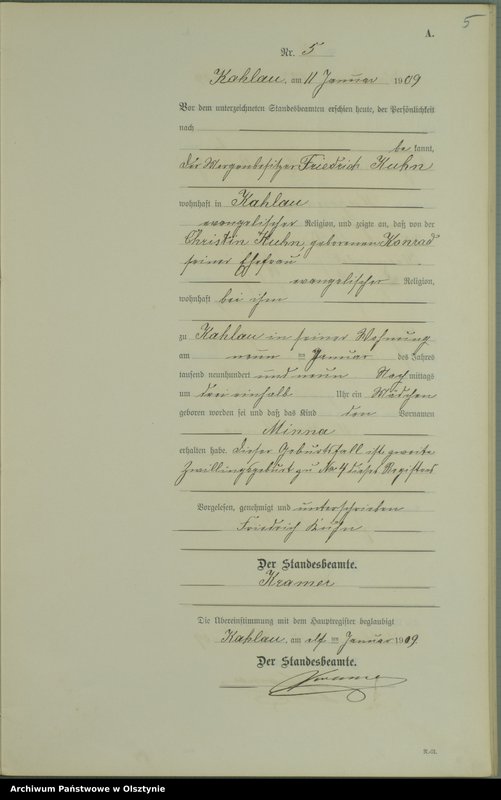 5
A.
Nr. 5
Kahlau, am 11 Januar 1909
Vor dem unterzeichneten Standesbeamten erschien heute, der Persönlichkeit
nach
be kannt,
der Morgenbesitzer Friedrich Kuhn
wohnhaft in Kahlau
evangelischer Religion, und zeigte an, daß von der
Christin Kuhn, geborenen Konrad
seiner Ehefrau
evangelischer Religion,
wohnhaft bei ihm
zu Kahlau in seiner Wohnung
am neun ten Januar des Jahres
tausend neunhundert und neun Nach mittags
um drei einhalb Uhr ein Mädchen
geboren worden sei und daß das Kind den Vornamen
Minna
erhalten habe. Dieser Geburtsfall ist zweite
Zwillingsgeburt zu No 4 dieses Registers
Vorgelesen, genehmigt und unterschrieben
Friedrich Kuhn
Der Standesbeamte.
Kramer
Die Übereinstimmung mit dem Hauptregister beglaubigt
Kahlau, am elf ten Januar 1909.
Der Standesbeamte.
Kramer
Archiwum Państwowe w Olsztynie